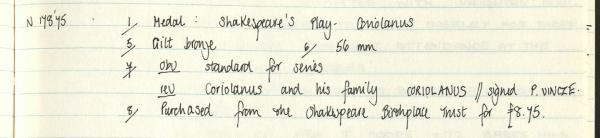 N 178'75 1/ Medal: Shakespeare's Play - Coriolanus
5/ Gilt bronze 6/ 56 mm
7/ obv standard for series
rev Coriolanus and his family CORIOLANUS // signed P. VINCZE.
8/ Purchased from the Shakespeare Birthplace Trust for £8.75.